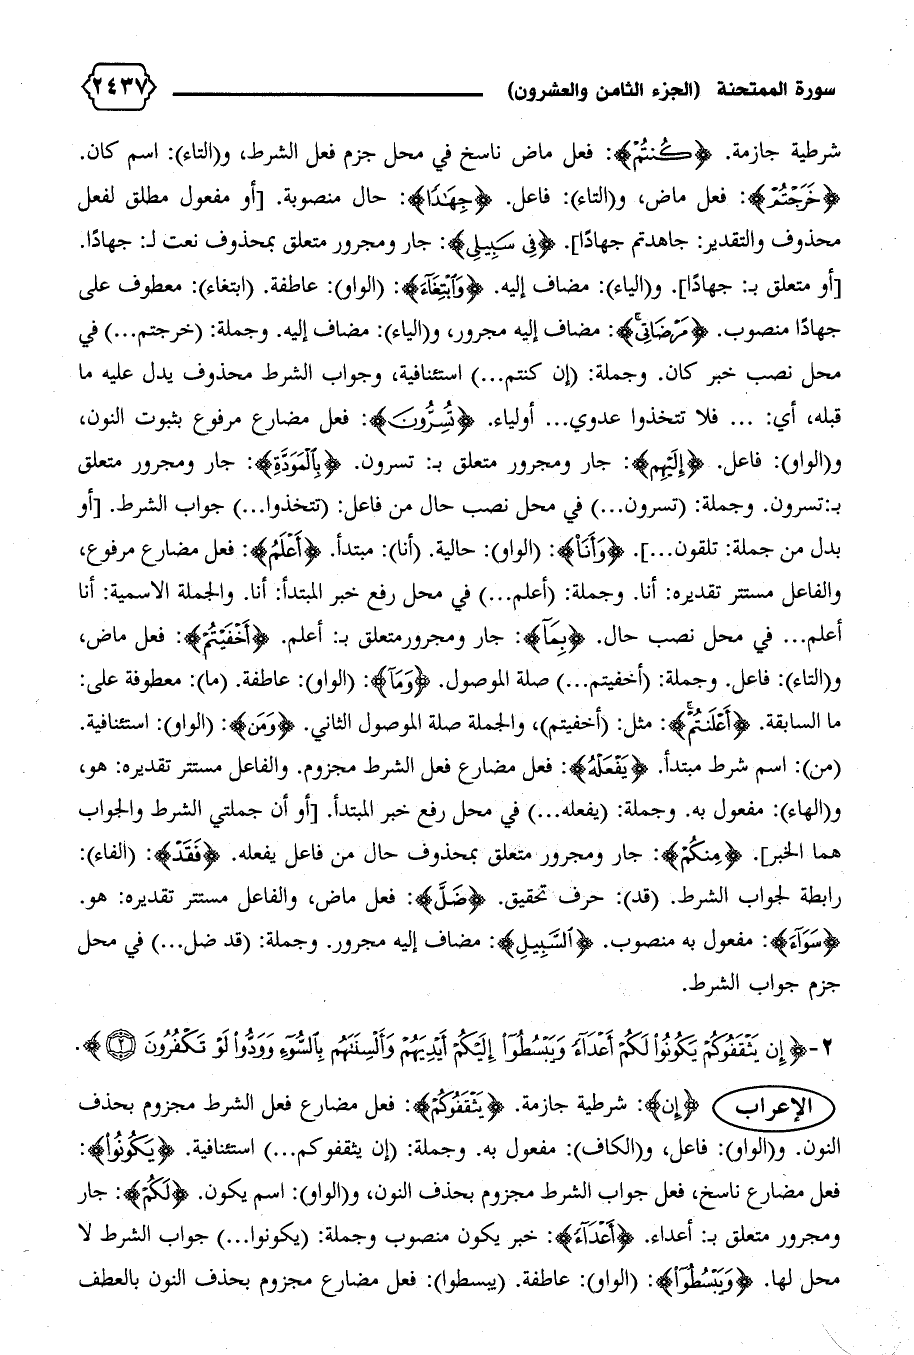 سورة الممتحنة (الجزء الثامن والعشرون) ٢٤٣٧
شرطية جازمة. ﴿كُنتُمْ﴾: فعل ماض ناسخ في محل جزم فعل الشرط، و(التاء): اسم كان.
﴿خَرَجْتُمْ﴾: فعل ماض، و(التاء): فاعل. ﴿جِهَٰدًا﴾: حال منصوبة. [أو مفعول مطلق لفعل
محذوف والتقدير: جاهدتم جهادًا]. ﴿فِي سَبِيلِي﴾: جار ومجرور متعلق بمحذوف نعت لـ: جهادًا.
[أو متعلق بـ: جهادًا]. و(الياء): مضاف إليه. ﴿وَٱبْتِغَآءَ﴾: (الواو): عاطفة. (ابتغاء): معطوف على
جهادًا منصوب. ﴿مَرْضَاتِيۚ﴾: مضاف إليه مجرور، و(الياء): مضاف إليه. وجملة: (خرجتم...) في
محل نصب خبر كان. وجملة: (إن كنتم...) استئنافية، وجواب الشرط محذوف يدل عليه ما
قبله، أي: ... فلا تتخذوا عدوي... أولياء. ﴿تُسِرُّونَ﴾: فعل مضارع مرفوع بثبوت النون،
و(الواو): فاعل. ﴿إِلَيْهِم﴾: جار ومجرور متعلق بـ: تسرون. ﴿بِٱلْمَوَدَّةِ﴾: جار ومجرور متعلق
بـ:تسرون. وجملة: (تسرون...) في محل نصب حال من فاعل: (تتخذوا...) جواب الشرط. [أو
بدل من جملة: تلقون...]. ﴿وَأَنَا۠﴾: (الواو): حالية. (أنا): مبتدأ. ﴿أَعْلَمُ﴾: فعل مضارع مرفوع،
والفاعل مستتر تقديره: أنا. وجملة: (أعلم...) في محل رفع خبر المبتدأ: أنا. والجملة الاسمية: أنا
أعلم... في محل نصب حال. ﴿بِمَآ﴾: جار ومجرورمتعلق بـ: أعلم. ﴿أَخْفَيْتُمْ﴾: فعل ماض،
و(التاء): فاعل. وجملة: (أخفيتم...) صلة الموصول. ﴿وَمَآ﴾: (الواو): عاطفة. (ما): معطوفة على:
ما السابقة. ﴿أَعْلَنتُمْۚ﴾: مثل: (أخفيتم)، والجملة صلة الموصول الثاني. ﴿وَمَن﴾: (الواو): استئنافية.
(من): اسم شرط مبتدأ. ﴿يَفْعَلْهُ﴾: فعل مضارع فعل الشرط مجزوم. والفاعل مستتر تقديره: هو،
و(الهاء): مفعول به. وجملة: (يفعله...) في محل رفع خبر المبتدأ. [أو أن جملتي الشرط والجواب
هما الخبر]. ﴿مِنكُمْ﴾: جار ومجرور متعلق بمحذوف حال من فاعل يفعله. ﴿فَقَدْ﴾: (الفاء):
رابطة لجواب الشرط. (قد): حرف تحقيق. ﴿ضَلَّ﴾: فعل ماض، والفاعل مستتر تقديره: هو.
﴿سَوَآءَ﴾: مفعول به منصوب. ﴿ٱلسَّبِيلِ﴾: مضاف إليه مجرور. وجملة: (قد ضل...) في محل
جزم جواب الشرط.
٢-﴿إِن يَثْقَفُوكُمْ يَكُونُوا۟ لَكُمْ أَعْدَآءً وَيَبْسُطُوٓا۟ إِلَيْكُمْ أَيْدِيَهُمْ وَأَلْسِنَتَهُم بِٱلسُّوٓءِ وَوَدُّوا۟ لَوْ تَكْفُرُونَ ٢﴾.
الإعراب ﴿إِن﴾: شرطية جازمة. ﴿يَثْقَفُوكُمْ﴾: فعل مضارع فعل الشرط مجزوم بحذف
النون. و(الواو): فاعل، و(الكاف): مفعول به. وجملة: (إن يثقفوكم...) استئنافية. ﴿يَكُونُوا۟﴾:
فعل مضارع ناسخ، فعل جواب الشرط مجزوم بحذف النون، و(الواو): اسم يكون. ﴿لَكُمْ﴾: جار
ومجرور متعلق بـ: أعداء. ﴿أَعْدَآءً﴾: خبر يكون منصوب وجملة: (يكونوا...) جواب الشرط لا
محل لها. ﴿وَيَبْسُطُوٓا۟﴾: (الواو): عاطفة. (يبسطوا): فعل مضارع مجزوم بحذف النون بالعطف